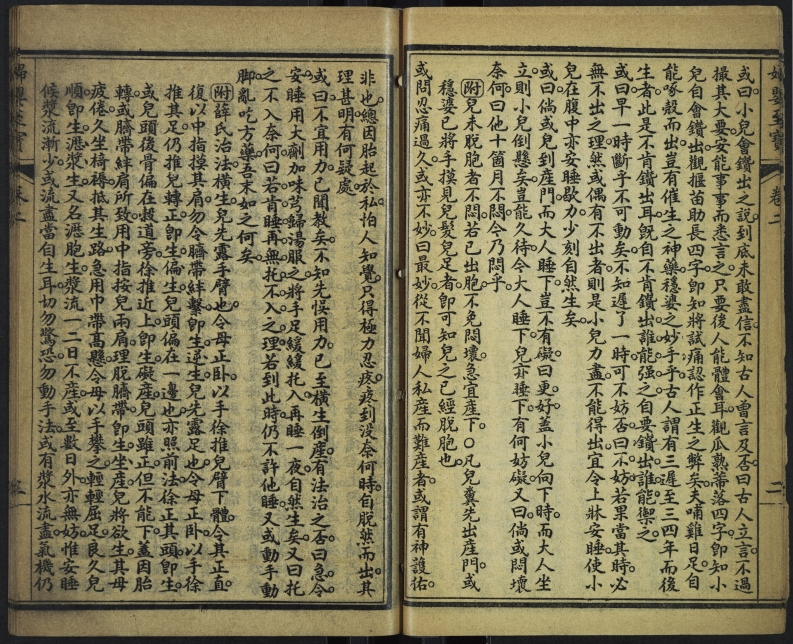 婦嬰至寶
卷二
二
或曰小兒會鑽出之說到底未敢盡信不知古人曾言及否曰古人立言不過
撮其大要安能事事而悉言之只要後人能體會耳觀瓜熟蒂落四字卽知小
兒自會鑽出觀揠苗助長四字卽知將試痛認作正生之弊矣夫哺雞日足自
能啄殼而出豈有催生之神藥穩婆之妙手乎古人謂有三遲至三四年而後
生者此是不肯鑽出耳旣自不肯鑽出誰能强之自要鑽出誰能禦之
或曰早一時斷乎不可動矣不知遲了一時可不妨否曰不妨若果當其時必
無不出之理然或偶有不出者則是小兒力盡不能得出宜令上牀安睡使小
兒在腹中亦安睡歇力少刻自然生矣
或曰倘或兒到產門而大人睡下豈不有礙曰更好蓋小兒向下時而大人坐
立則小兒倒懸矣豈能久待今大人睡下兒亦睡下有何妨礙又曰倘或悶壞
奈何曰他十個月不悶今乃悶乎
附兒未脫胞者不悶若已出胞不免悶壞急宜產下○凡兒糞先出產門或
穩婆已將手摸見兒髮兒足者卽可知兒之已經脫胞也
或問忍痛過久或亦不妙曰最妙從不聞婦人私產而難產者或謂有神護佑
非也總因胎起於私怕人知覺只得極力忍疼疼到沒奈何時自脫然而出其
理甚明有何疑處
或曰不宜用力已聞教矣不知先悞用力已至橫生倒產有法治之否曰急令
安睡用大劑加味芎歸湯服之將手足緩緩托入再睡一夜自然生矣又曰托
之不入奈何曰若肯睡再無托不入之理若到此時仍不許他睡又或動手動
脚亂吃方藥吾末如之何矣
附薛氏治法橫生兒先露手臂也令母正卧以手徐推兒臂下體令其正直
復以中指摸其肩勿令臍帶絆繫卽生逆生兒先露足也令母正卧以手徐
推其足仍推兒轉正卽生偏生兒頭偏在一邊也亦照前法徐正其頭卽生
或兒頭後骨偏在穀道旁徐推近上卽生礙產兒頭雖正但不能下蓋因胎
轉或臍帶絆肩所致用中指按兒兩肩理脫臍帶卽生坐產兒將欲生其母
疲倦久坐椅褥抵其生路急用巾帶高懸令母以手攀之輕輕屈足良久兒
順卽生瀝漿生又名瀝胞生漿流一二日不產或至數日外亦無妨惟安睡
候漿流漸少或流盡當自生耳切勿驚恐勿動手法或有漿水流盡氣機仍
婦嬰至寶
卷二